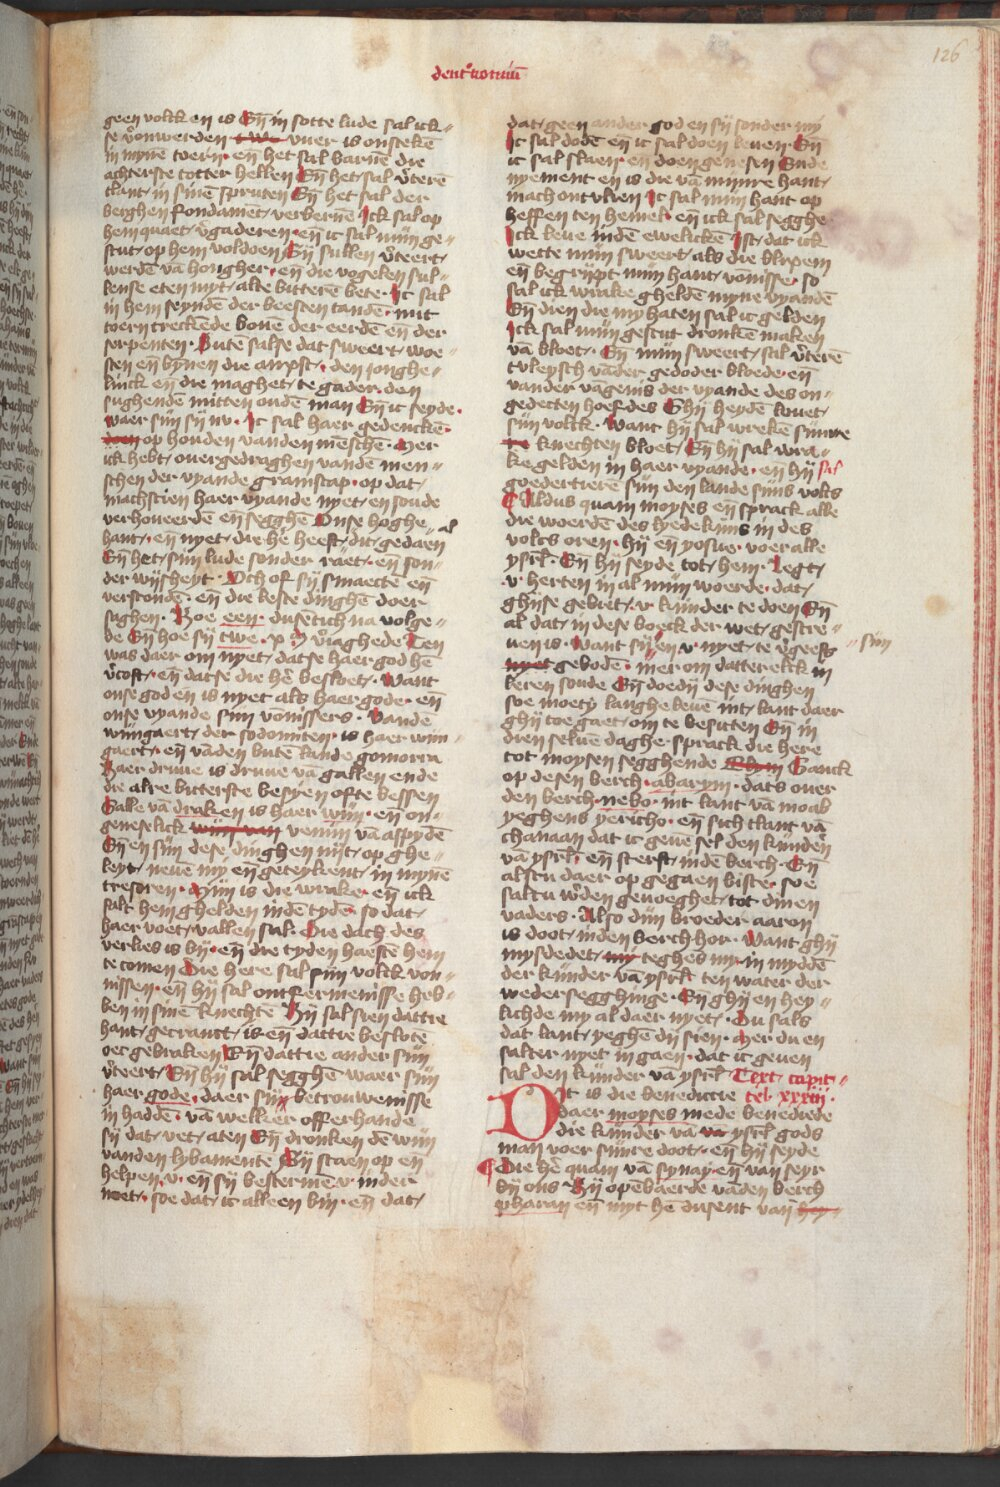 126
deut'notnm̄
geen volck en is En̄ in sotte lude sal ick
se v̓tonwerden vuer is onstekē
in mynē toern en̄ het sal barnē die
achterste totter hellen En̄ het sal v̓terē
tlant in sinē spruten En̄ het sal der
berghen fondamēt verbernē Ick sal op
hem quaet v̓gaderen en̄ ic sal mijn ge
scut op hem voldoen Sij sullen v̓teert
werdē vā hongher en̄ die vogelen sul
lense eten myt alte bitterē bete Ic sal
in hem seyndē der beesten tandē mit
toern treckēde bouē der eerdē en̄ der
serpenten Butē salse dat sweert woe
sten en̄ bynen die anxst den jonghe
linck en̄ die maghet te gader den
sughendē mitten oudē man En̄ ic seyde
waer sijn sij nv Ic sal haer gedenckē
doen op houden vanden mēschē Mer
ick hebt ouergedraghen vandē men
schen der vyande gramscap op dat
machscien haer vyande nyet en soude
verhoueerdē en̄ segghē Onse hoghe
hant en̄ nyet die hē heeft dit gedaen al
En̄ het sijn lude sonder raet en̄ son
der wijsheyt Och of sij smaectē en̄
verstondē en̄ die leste dinghē doer
saghen Hoe een dusētich na volge
de En̄ hoe sij twe x m v̓iaghede Ten
was daer om nyet datse haer god hē
v̓coft en̄ datse die hē besloet Want
onse god en is nyet als haer gode en̄
onse vyande sijn vonissers Vandē
wijngaert der sodomiten is haer wijn
gaert en̄ vāden butē lande gomorra
Haer druue is druue vā gallen ende
die alre bitterste besyen ofte bessen
Galle vā draken is haer wijn en̄ on
geneselick wijn van venijn vā aspydē
En̄ en sijn dese dinghen nijt op ghe
leyt neuē my en̄ geteykent in mynē
tresoren Mijn is die wrake en̄ ick
salt hem ghelden indē tydē so dat
haer voet vallen sal Die dach des
verlies is bij en̄ die tyden haestē hem
te comen Die here sal sijn volck von
nissen en̄ hij sal ontfermenisse heb
ben in sinē knechtē Hij sal sien dattie
hant gecranct is en̄ dattie beslotē
oec gebraken En̄ dattie ander sijn
v̓teert En̄ hij sal segghē waer sijn
haer gode daer sijn betrouwenisse
in haddē vā welker offerhande
sij dat vet aten En̄ dronken dē wijn
vanden lybamente Sij staen op en̄
helpen v en̄ sij beschermē v inder
noet soe dat ic alleen bin en̄ dat
dat geen ander god en sij sonder my
Ic sal dodē en̄ ic sal doen leuen En̄
ic sal slaen en̄ doen genesen Ende
nyement en is die vā mijnre hant
mach ontvlien Ic sal mijn hant op
heffen ten hemel en̄ ick sal segghe
Ick leue indē ewelickē Ist dat ick
wette mijn sweert als die blixem
en̄ begrijpt mijn hant vōnisse so
sal ick wrake gheldē myne vyandē
En̄ dien die my haten sal ic gelden
Ick sal mijn gescut dronkē maken
vā bloet En̄ mijn sweert sal v̓terē
tvleysch vāder gedoder bloede en̄
vander vāgenis der vyande des on
gedecten hoefdes Ghij heydē louet
sijn volck Want hij sal wrekē sijnre
knechten bloet En̄ hij sal wra
ke gelden in haer vyande en̄ hij sal
goedertierē sijn den lande sijns volks
Aldus quam moyses en̄ sprack alle
die woerdē des lyedekijns in des
volcs oren hij en̄ yosue voer alle
ysrl̄ En̄ hij seyde tot hem Legt
v herten in al mijn woerdē dat
ghijse gebiet v kijnder te doen En̄
al dat in dese boeck der wet gescre
uen is Want sij en v nyet te v̓geefs sijn
nyet gebodē mer om datter elck in
leren soude En̄ doedij dese dinghen
soe moety langhe leuē int lant daer
ghij toe gaet om te besitten En̄ in
dien seluē daghe sprack die here
tot moysen segghende Ganck
op desen berch abarym dats ouer
den berch nebo int lant vā moab
yeghens yericho en̄ sich tlant vā
chanaan dat ic geuē sel den kijndēn
vā ysrl̄ en̄ sterft indē berch En̄
alstu daer op gegaen biste soe
saltu w̓den genoeghet tot dinen
vaders Also dijn broeder aaron
is doot inden berch hor Want ghij
mysdedet my teghes my in myddē
der kijnder vā ysrl̄ ten water der
wedersegghinge En̄ ghij en hey
lichde my al daer nyet Du sals
dat lant yeghē dij sien Mer du en
salter nyet in gaen dat ic geuen
sal den kijnder vā ysrl̄ Text capit
Dit is die benedictie tel xxxiij
daer moyses mede benediede
die kijnder vā ysrl̄ gods
man voer sijnre doot en̄ hij seyde
Die hē quam vā synay en̄ van seyr
bij ons Hij opēbaerde vādē berch
pharan en̄ myt hē dusent van hey